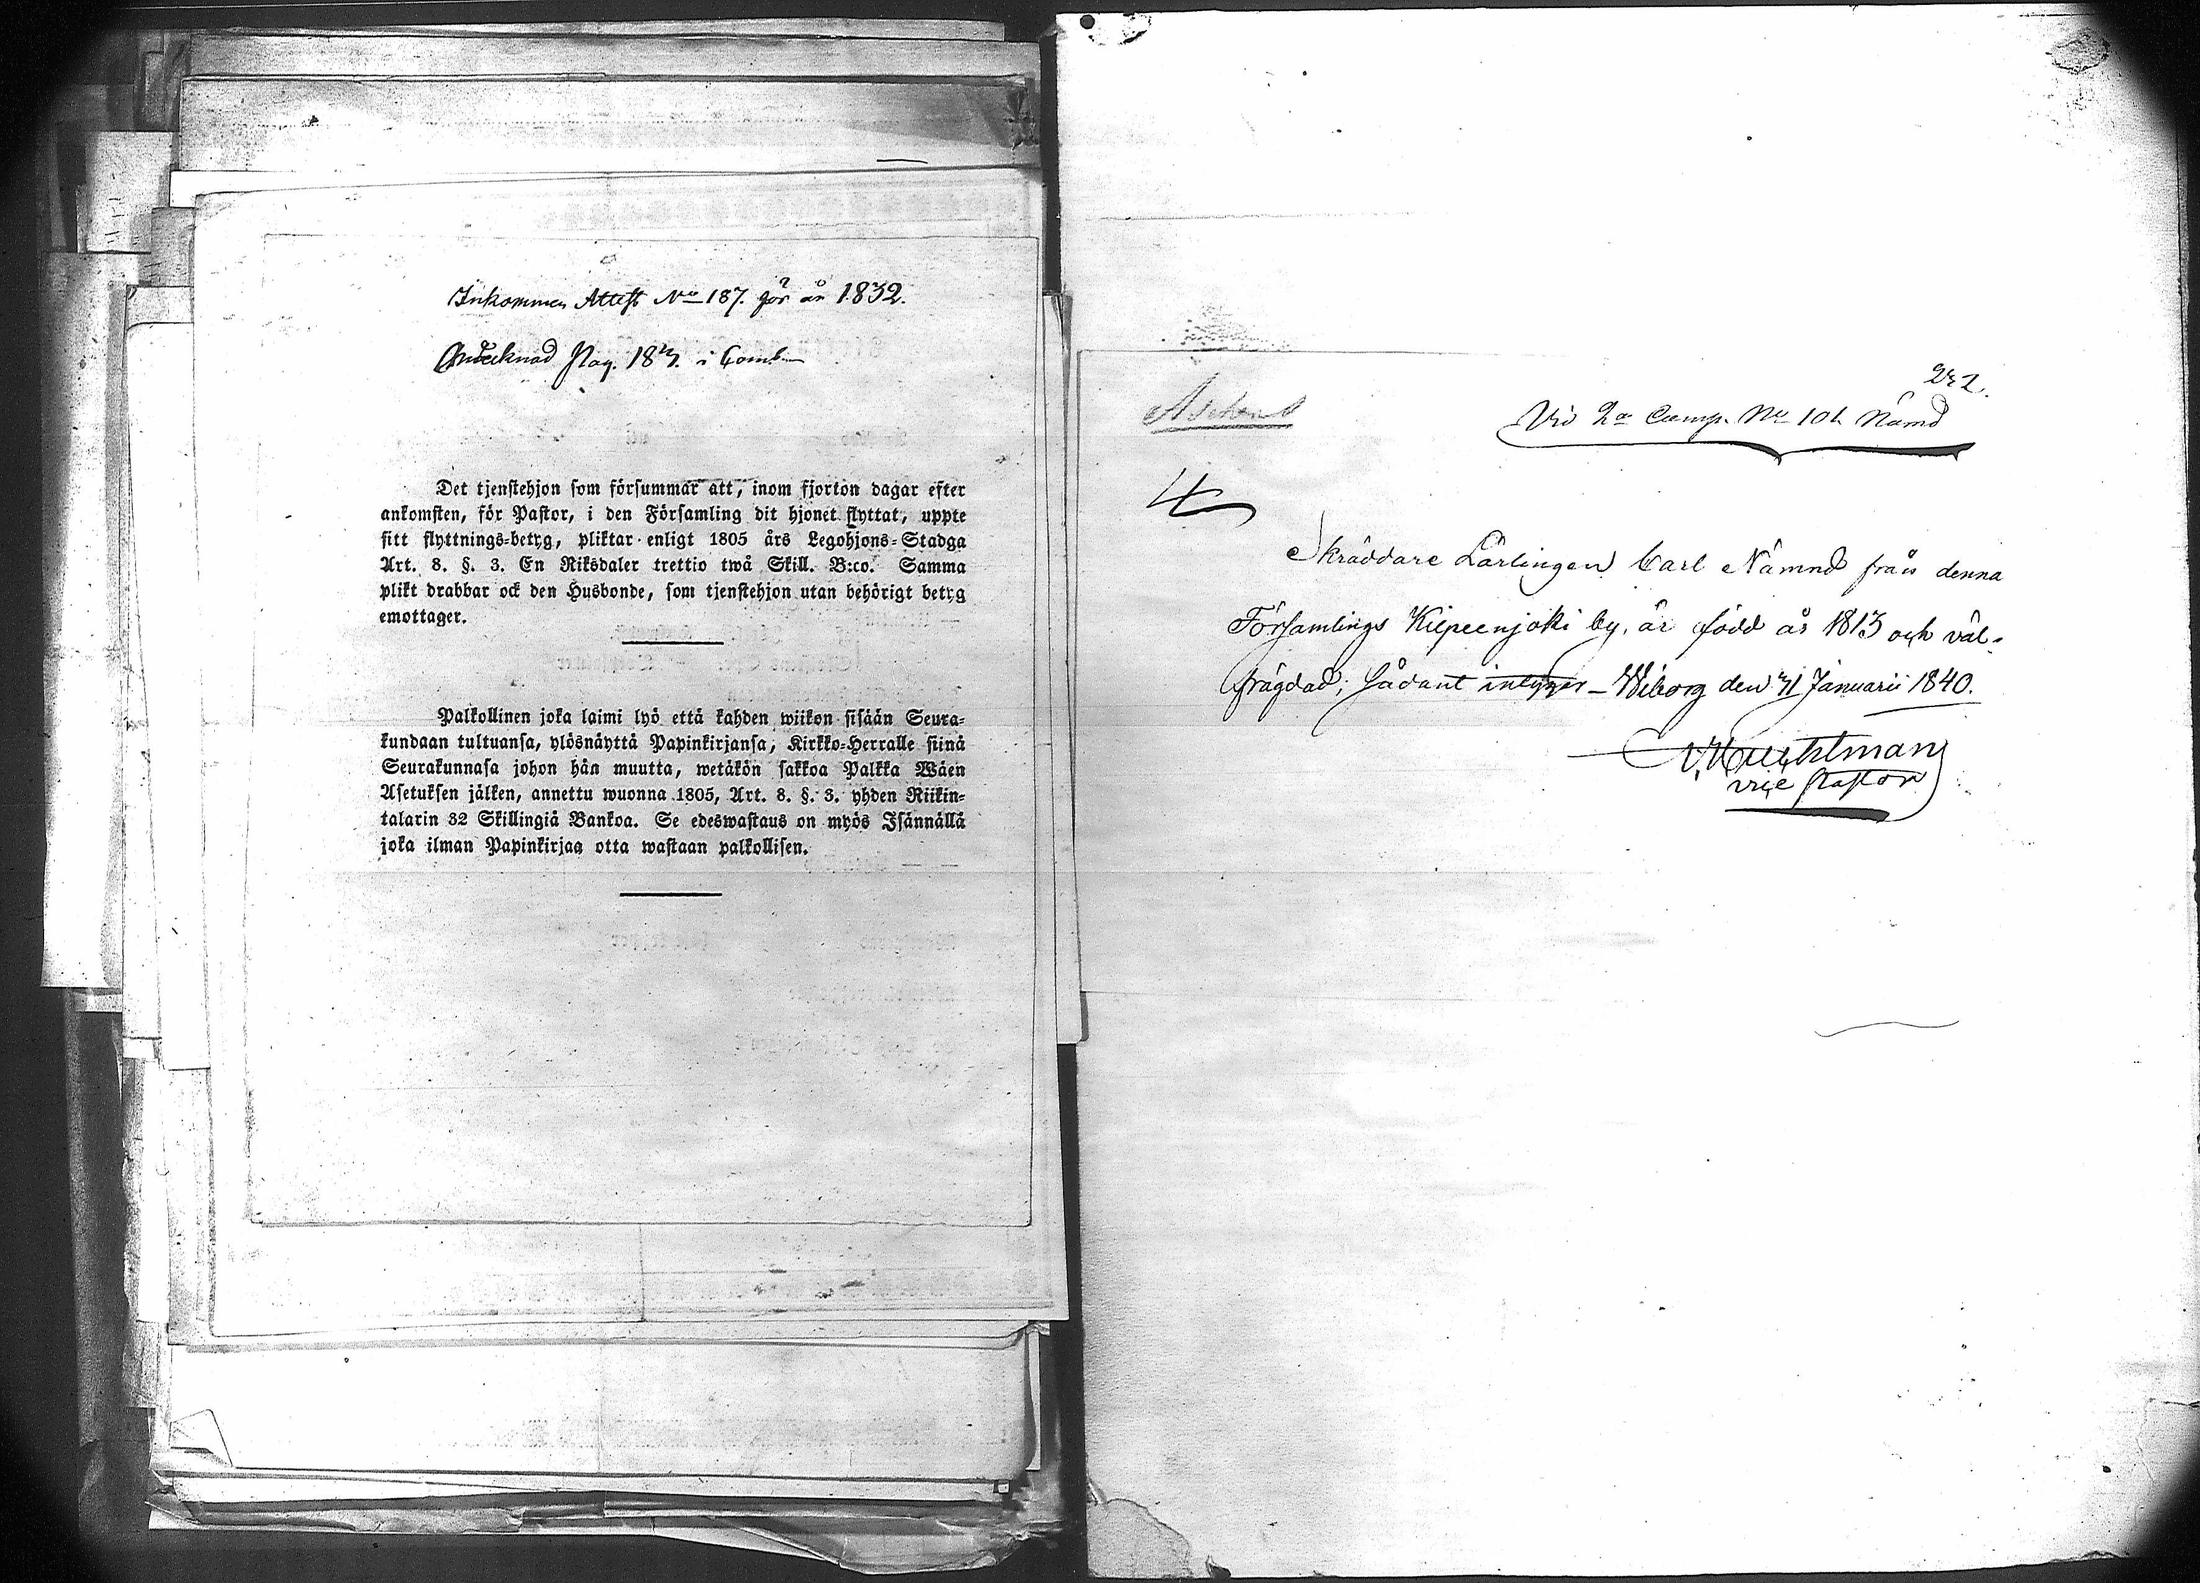 Inkommen Attest No 187. för år 1832.
Antecknad Pag. 183. i Comb
Det tjenstehjon som försummar att, inom fjorton dagar efter
ankomsten, för Pastor, i den Församling dit hjonet flyttat, uppte
sitt flyttnings-betyg, pliktar enligt 1805 års Legohjons-Stadga
Art. 8. §. 3. En Riksdaler trettio twå Skill. B:co. Samma
plikt drabbar ock den Husbonde, som tjenstehjon utan behörigt betyg
emottager.
Palkollinen joka laimi lyö että kahden wiikon sisään Seura-
kundaan tultuansa, ylösnäyttä Papinkirjansa, Kirkko-Herralle siinä
Seurakunnasa johon hän muutta, wetäkön sakkoa Palkka Wäen
Asetuksen jälken, annettu wuonna 1805, Art. 8. §. 3. yhden Riikin-
talarin 32 Skillingiä Bankoa. Se edeswastaus on myös Isännällä
joka ilman Papinkirjaa otta wastaan palkollisen.
Vid 2a Comp. No 101 Nämd
Skräddare Lärlingen Carl Nämnd från denna
Församlings Kiepeenjoki by, är född år 1813 och väl-
frägdad; sådant intygar - Wiborg den 31 Januarii 1840.
vice Pastor